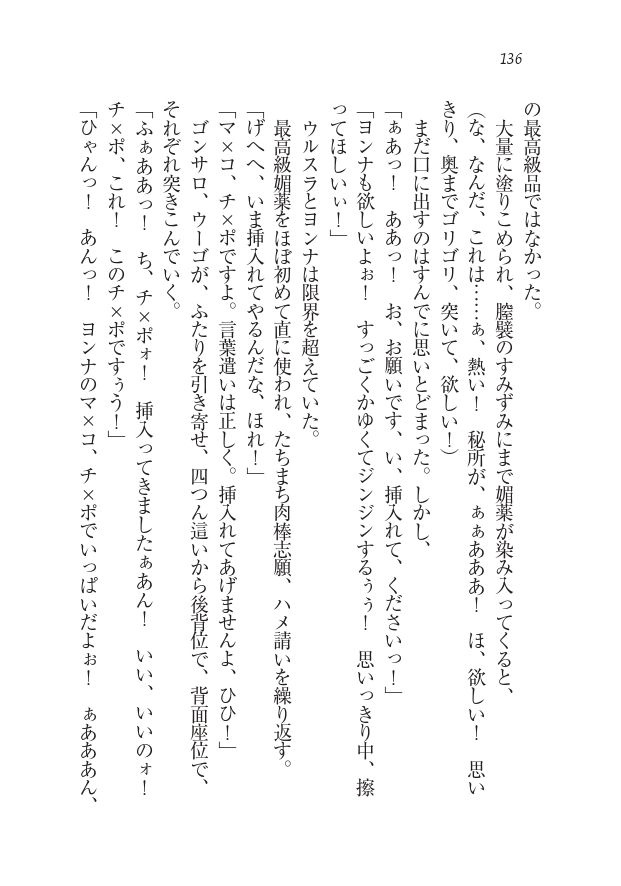 136
の最高級品ではなかった。
大量に塗りこめられ、膣襞のすみずみにまで媚薬が染み入ってくると、
(な、なんだ、これは……ぁ、熱い！　秘所が、ぁぁあああ！　ほ、欲しい！　思い
きり、奥までゴリゴリ、突いて、欲しい！)
まだ口に出すのはすんでに思いとどまった。しかし、
「ぁあっ！　ああっ！　お、お願いです、い、挿入れて、くださいっ！」
「ヨンナも欲しいよぉ！　すっごくかゆくてジンジンするぅぅ！　思いっきり中、擦
ってほしいぃ！」
ウルスラとヨンナは限界を超えていた。
最高級媚薬をほぼ初めて直に使われ、たちまち肉棒志願、ハメ請いを繰り返す。
「げへへ、いま挿入れてやるんだな、ほれ！」
「マ×コ、チ×ポですよ。言葉遣いは正しく。挿入れてあげませんよ、ひひ！」
ゴンサロ、ウーゴが、ふたりを引き寄せ、四つん這いから後背位で、背面座位で、
それぞれ突きこんでいく。
「ふぁああっ！　ち、チ×ポォ！　挿入ってきましたぁあん！　いい、いいのォ！
チ×ポ、これ！　このチ×ポですぅう！」
「ひゃんっ！　あんっ！　ヨンナのマ×コ、チ×ポでいっぱいだよぉ！　ぁあああん、